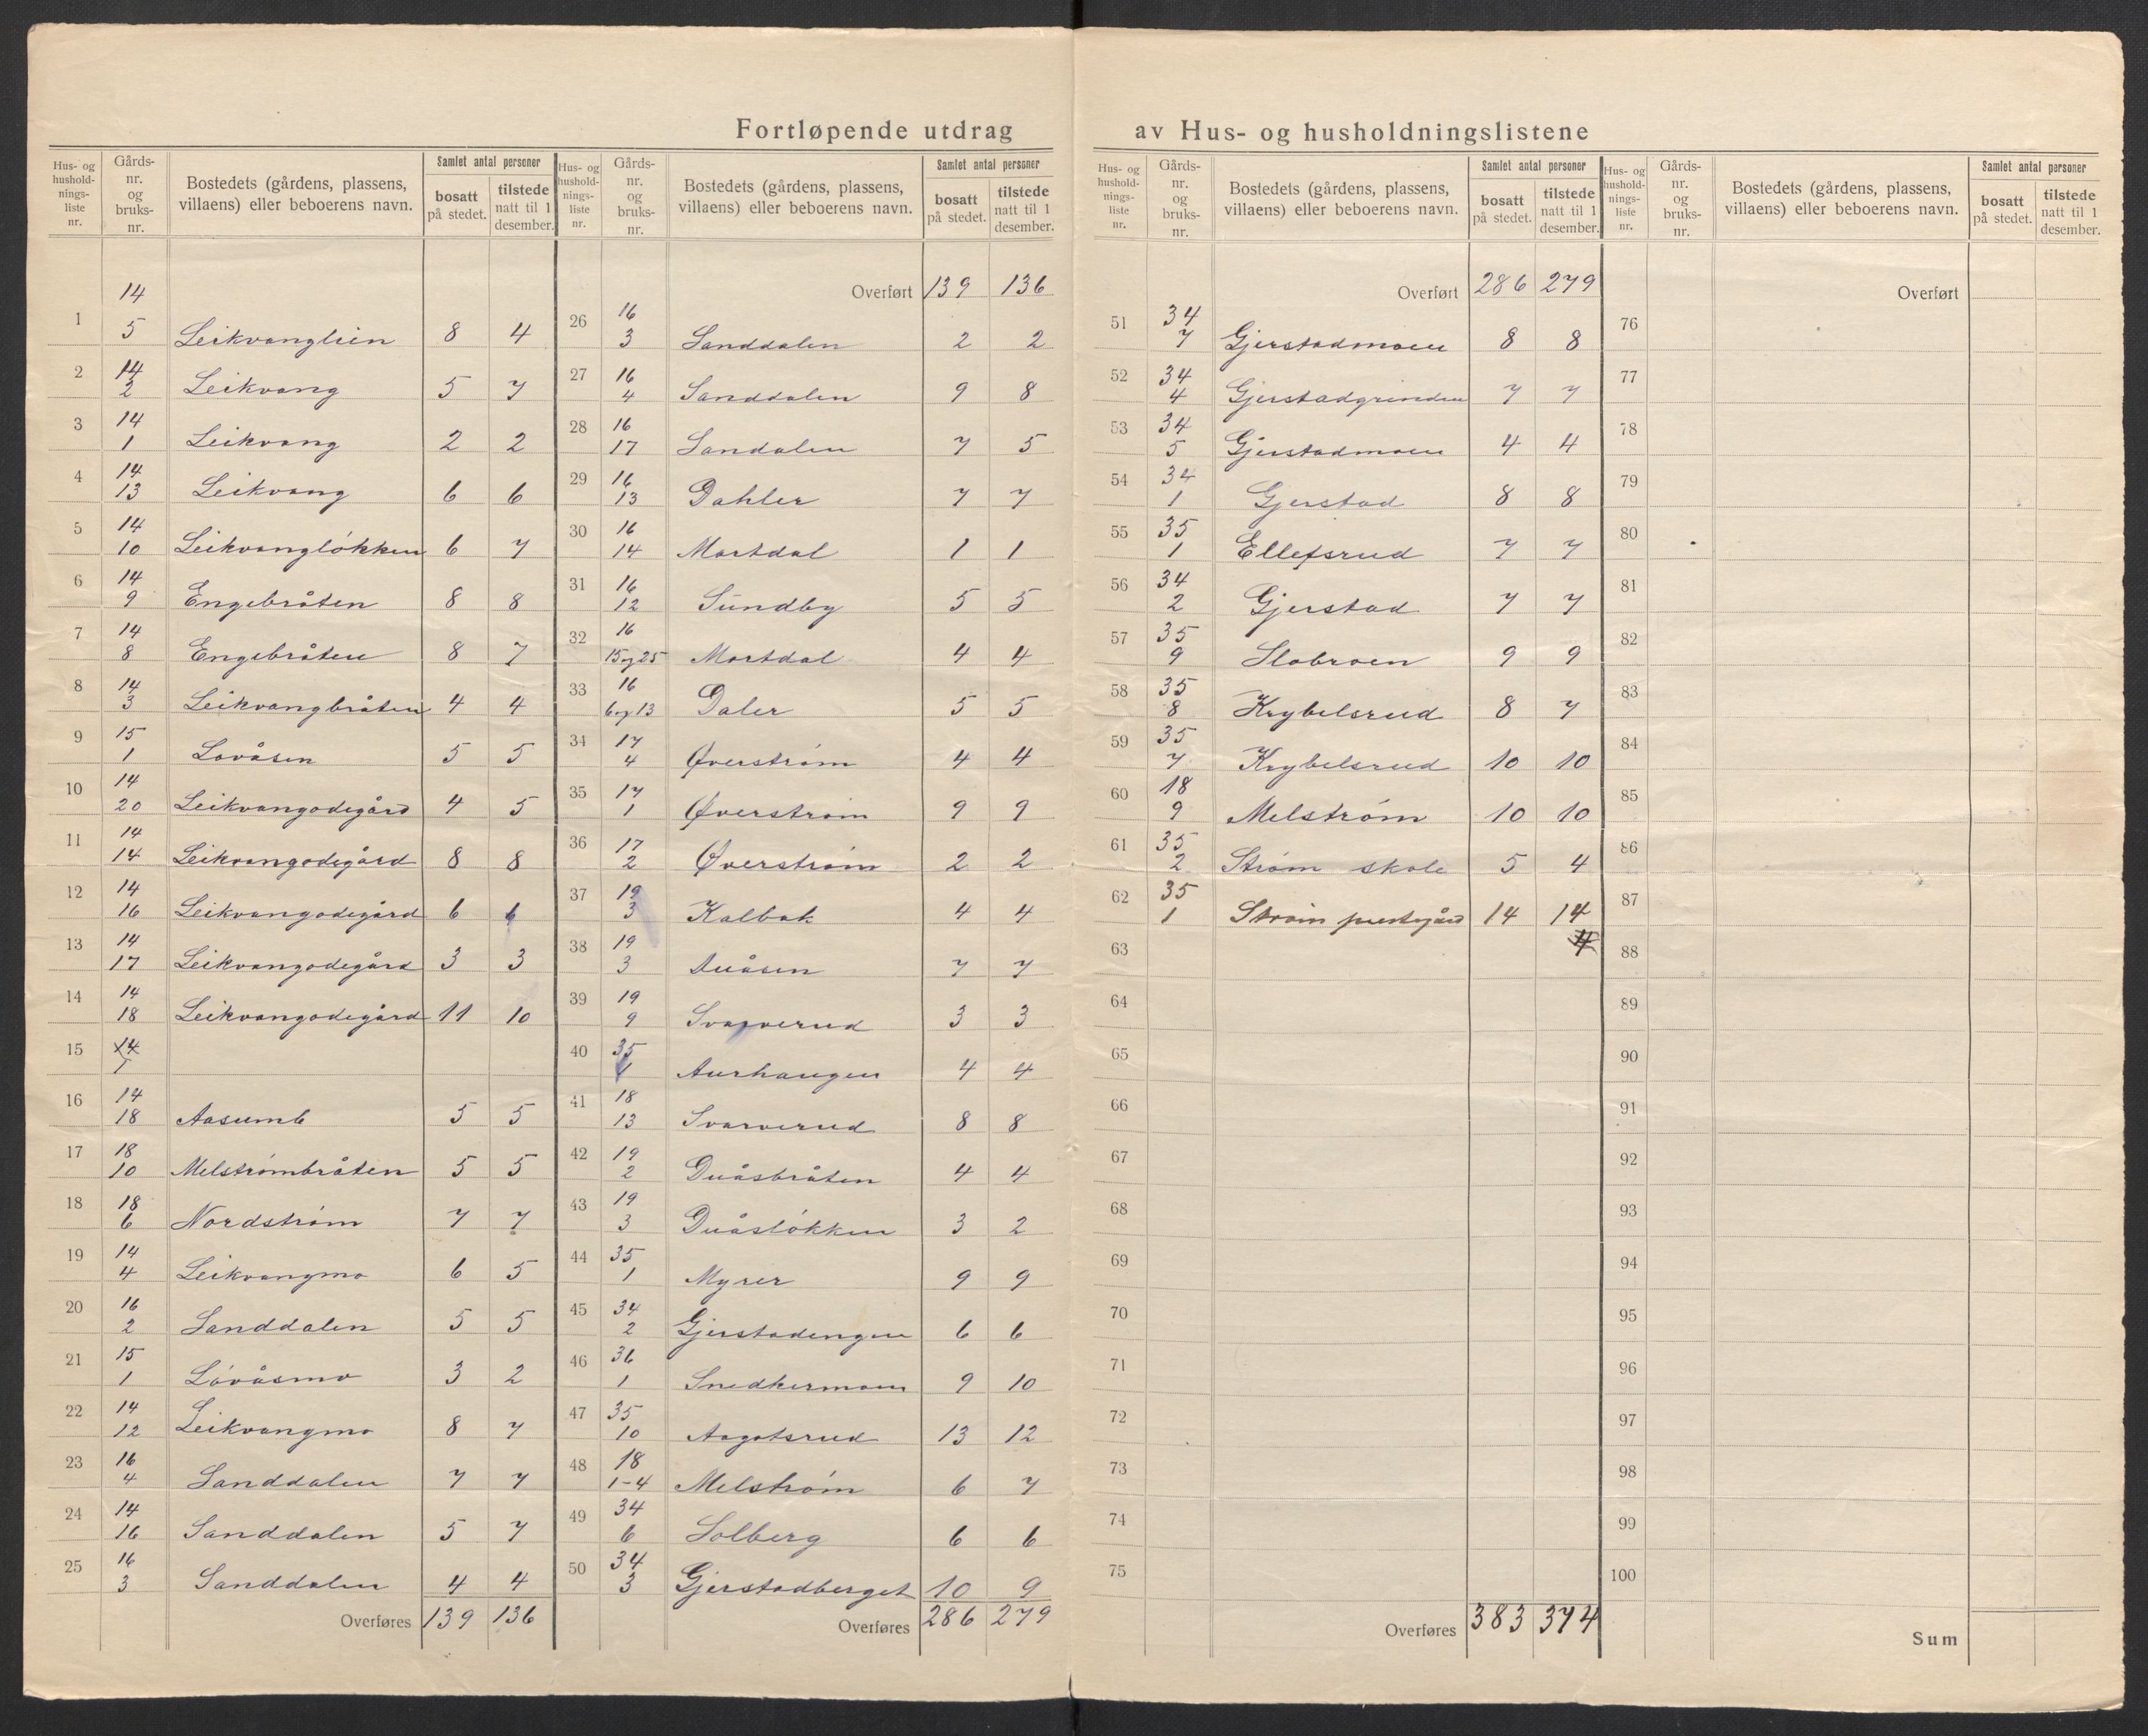 Fortløpende utdrag av Hus- og husholdningslistene
Hus- og hushold-nings-liste nr. Gårds-nr. og bruks-nr. Bostedets (gårdens, plassens, villaens) eller beboerens navn. Samlet antal personer bosatt på stedet. tilstede natt til 1 desember.
1 14 5 Leikvanglien 8 4
2 14 2 Leikvang 5 7
3 14 1 Leikvang 2 2
4 14 13 Leikvang 6 6
5 14 10 Leikvangløkken 6 7
6 14 9 Engebråten 8 8
7 14 8 Engebråten 8 7
8 14 3 Leikvangbråten 4 4
9 15 1 Lovåsen 5 5
10 14 20 Leikvangodegård 4 5
11 14 14 Leikvangodegård 8 8
12 14 16 Leikvangodegård 6 6
13 14 17 Leikvangodegård 3 3
14 14 18 Leikvangodegård 11 10
15 14 1
16 14 18 Aasumb 5 5
17 18 10 Melstrømbråten 5 5
18 18 6 Nordstrøm 7 7
19 14 4 Leikvangmo 6 5
20 16 2 Sanddalen 5 5
21 15 1 Lóvåsmo 3 2
22 14 12 Leikvangmo 8 7
23 16 4 Sanddalen 7 7
24 14 16 Sanddalen 5 7
25 16 3 Sanddalen 4 4
Overføres 139 136
Hus- og hushold-nings-liste nr. Gårds-nr. og bruks-nr. Bostedets (gårdens, plassens, villaens) eller beboerens navn. Samlet antal personer bosatt på stedet. tilstede natt til 1 desember.
Overført 139 136
26 16 3 Sanddalen 2 2
27 16 4 Sanddalen 9 8
28 16 17 Sandalen 7 5
29 16 13 Dahler 7 7
30 16 14 Mortdal 1 1
31 16 12 Sundby 5 5
32 16 15 og 25 Mortdal 4 4
33 16 6 og 13 Daler 5 5
34 17 4 Øverstrøm 4 4
35 17 1 Øverstrøm 9 9
36 17 2 Øverstrøm 2 2
37 19 3 Kalbak 4 4
38 19 3 Duåsen 7 7
39 19 9 Svarverud 3 3
40 35 1 Aurhaugen 4 4
41 18 13 Svarverud 8 8
42 19 2 Duåsbråten 4 4
43 19 3 Duåsløkken 3 2
44 35 1 Myrer 9 9
45 34 2 Gjerstadengen 6 6
46 36 1 Snedkermoen 9 10
47 35 10 Aagotsrud 13 12
48 18 1-4 Melstrøm 6 7
49 34 6 Solberg 6 6
50 34 3 Gjerstadberget 10 9
Overføres 286 279
Hus- og hushold-nings-liste nr. Gårds-nr. og bruks-nr. Bostedets (gårdens, plassens, villaens) eller beboerens navn. Samlet antal personer bosatt på stedet. tilstede natt til 1 desember.
Overført 286 279
51 34 7 Gjerstadmoen 8 8
52 34 4 Gjerstadgrinden 7 7
53 34 5 Gjerstadmoen 4 4
54 34 1 Gjerstad 8 8
55 35 1 Ellefsrud 7 7
56 34 2 Gjerstad 7 7
57 35 9 Slobroen 9 9
58 35 8 Krybelsrud 8 7
59 35 7 Krybelsrud 10 10
60 18 9 Melstrøm 10 10
61 35 2 Strøm skole 5 4
62 35 1 Strøm prestegård 14 14
63 4
64
65
66
67
68
69
70
71
72
73
74
75
Overføres 383 374
Hus- og hushold-nings-liste nr. Gårds-nr. og bruks-nr. Bostedets (gårdens, plassens, villaens) eller beboerens navn. Samlet antal personer bosatt på stedet. tilstede natt til 1 desember.
Overført
76
77
78
79
80
81
82
83
84
85
86
87
88
89
90
91
92
93
94
95
96
97
98
99
100
Sum